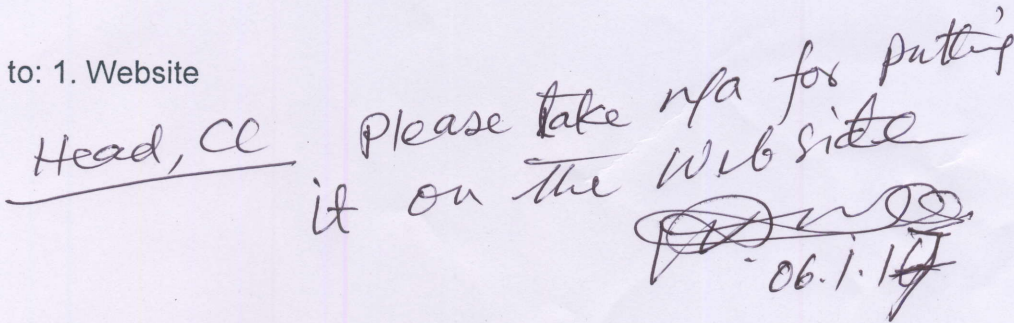 to: 1. Website
Head, CC Please take n/a for putting
it on the Webside
06.1.17